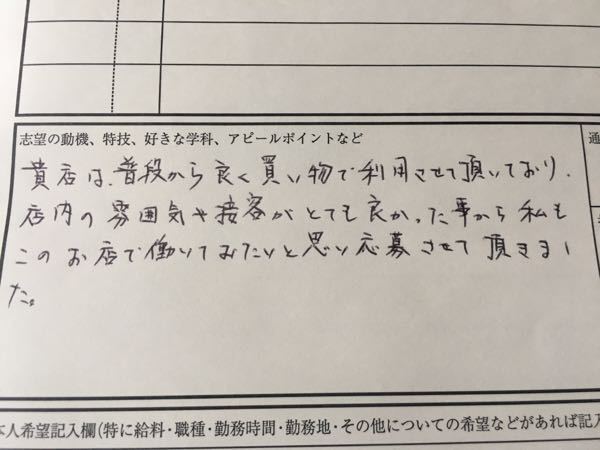 志望の動機、特技、好きな学科、アピールポイントなど
通
貴店は、普段から良く買い物で利用させて頂いており、
店内の雰囲気や接客がとても良かった事から私も
このお店で働いてみたいと思い応募させて頂きまし
た。
本人希望記入欄(特に給料・職種・勤務時間・勤務地・その他についての希望などがあれば記入